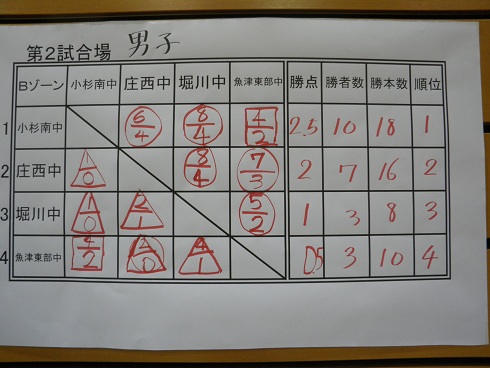 第2試合場 男子
Bゾーン 小杉南中 庄西中 堀川中 魚津東部中 勝点 勝者数 勝本数 順位
1 小杉南中 6/4 8/4 4/2 2.5 10 18 1
2 庄西中 1/0 8/4 7/3 2 7 16 2
3 堀川中 1/0 2/1 5/2 1 3 8 3
4 魚津東部中 4/2 2/0 4/1 0.5 3 10 4